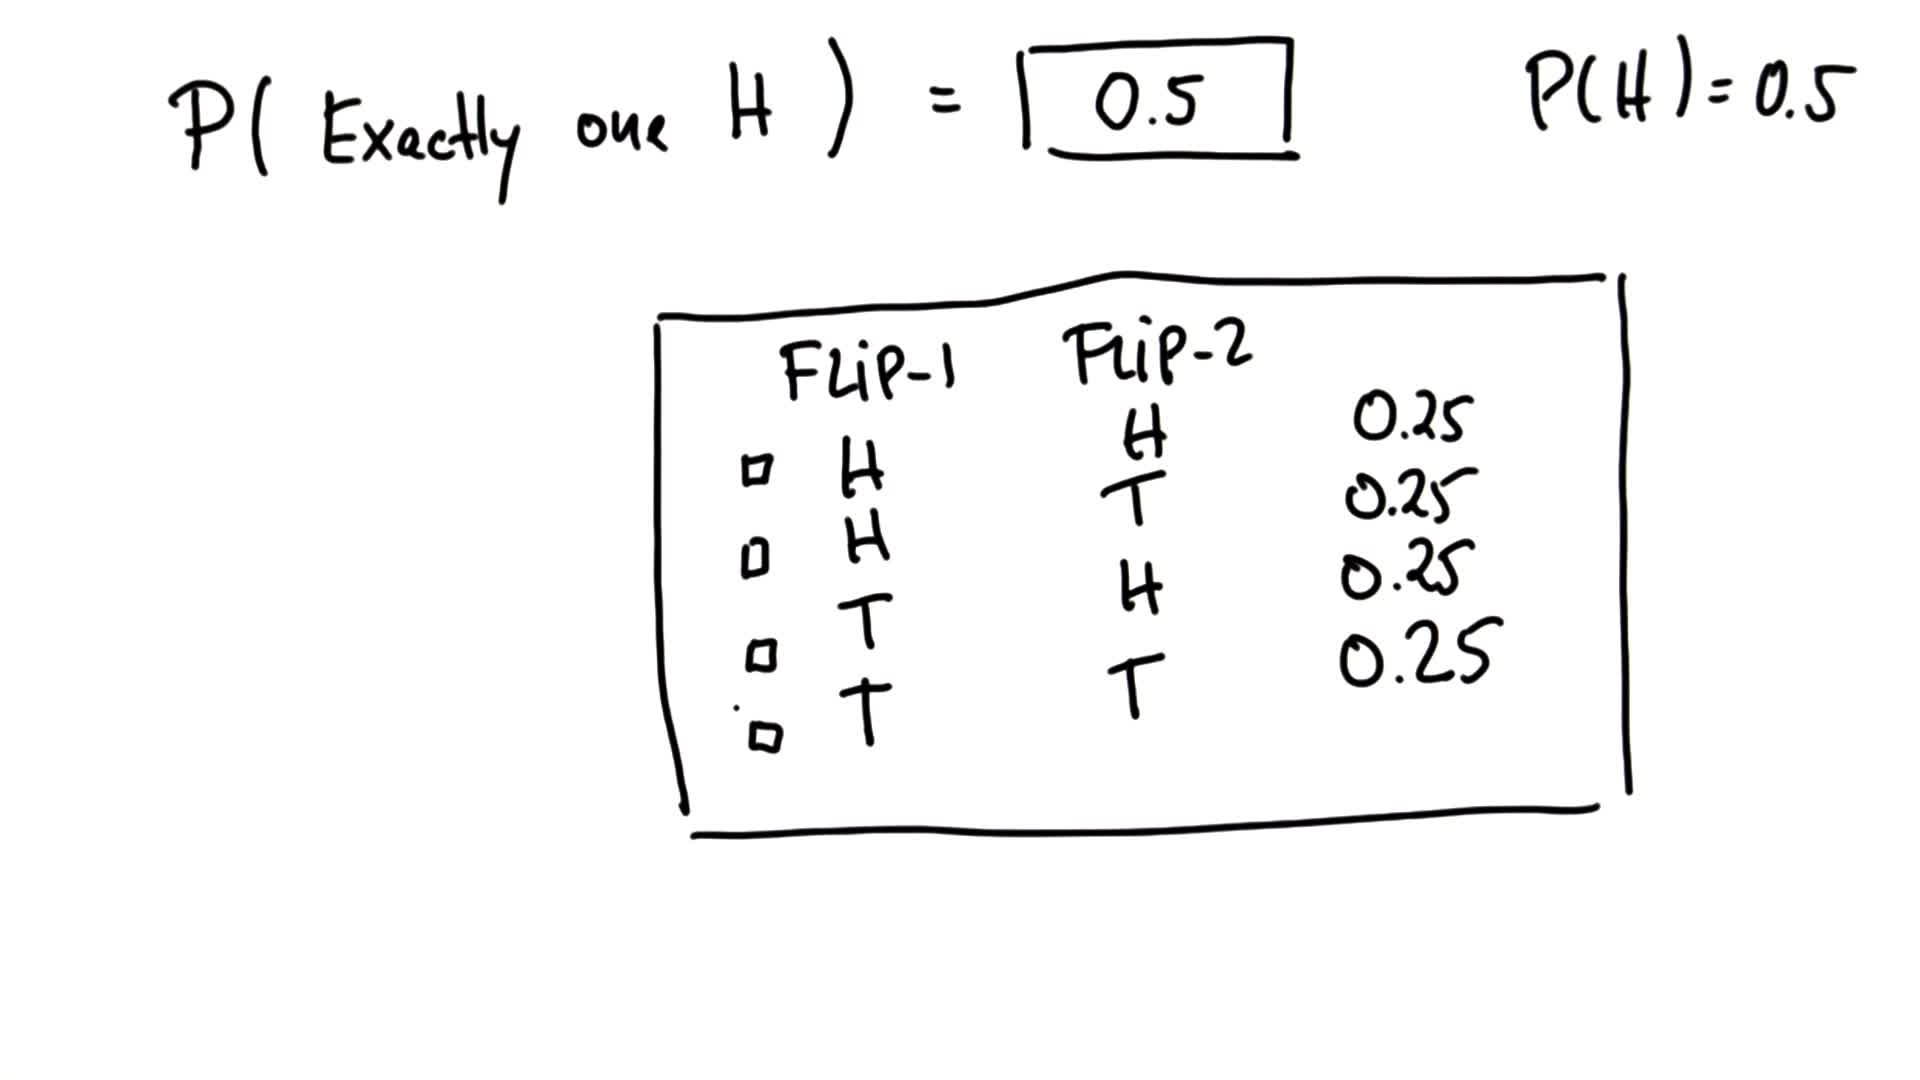 P( Exactly one H ) = 0.5 P(H) = 0.5
FLiP-1 FLiP-2
H H 0.25
H T 0.25
T H 0.25
T T 0.25